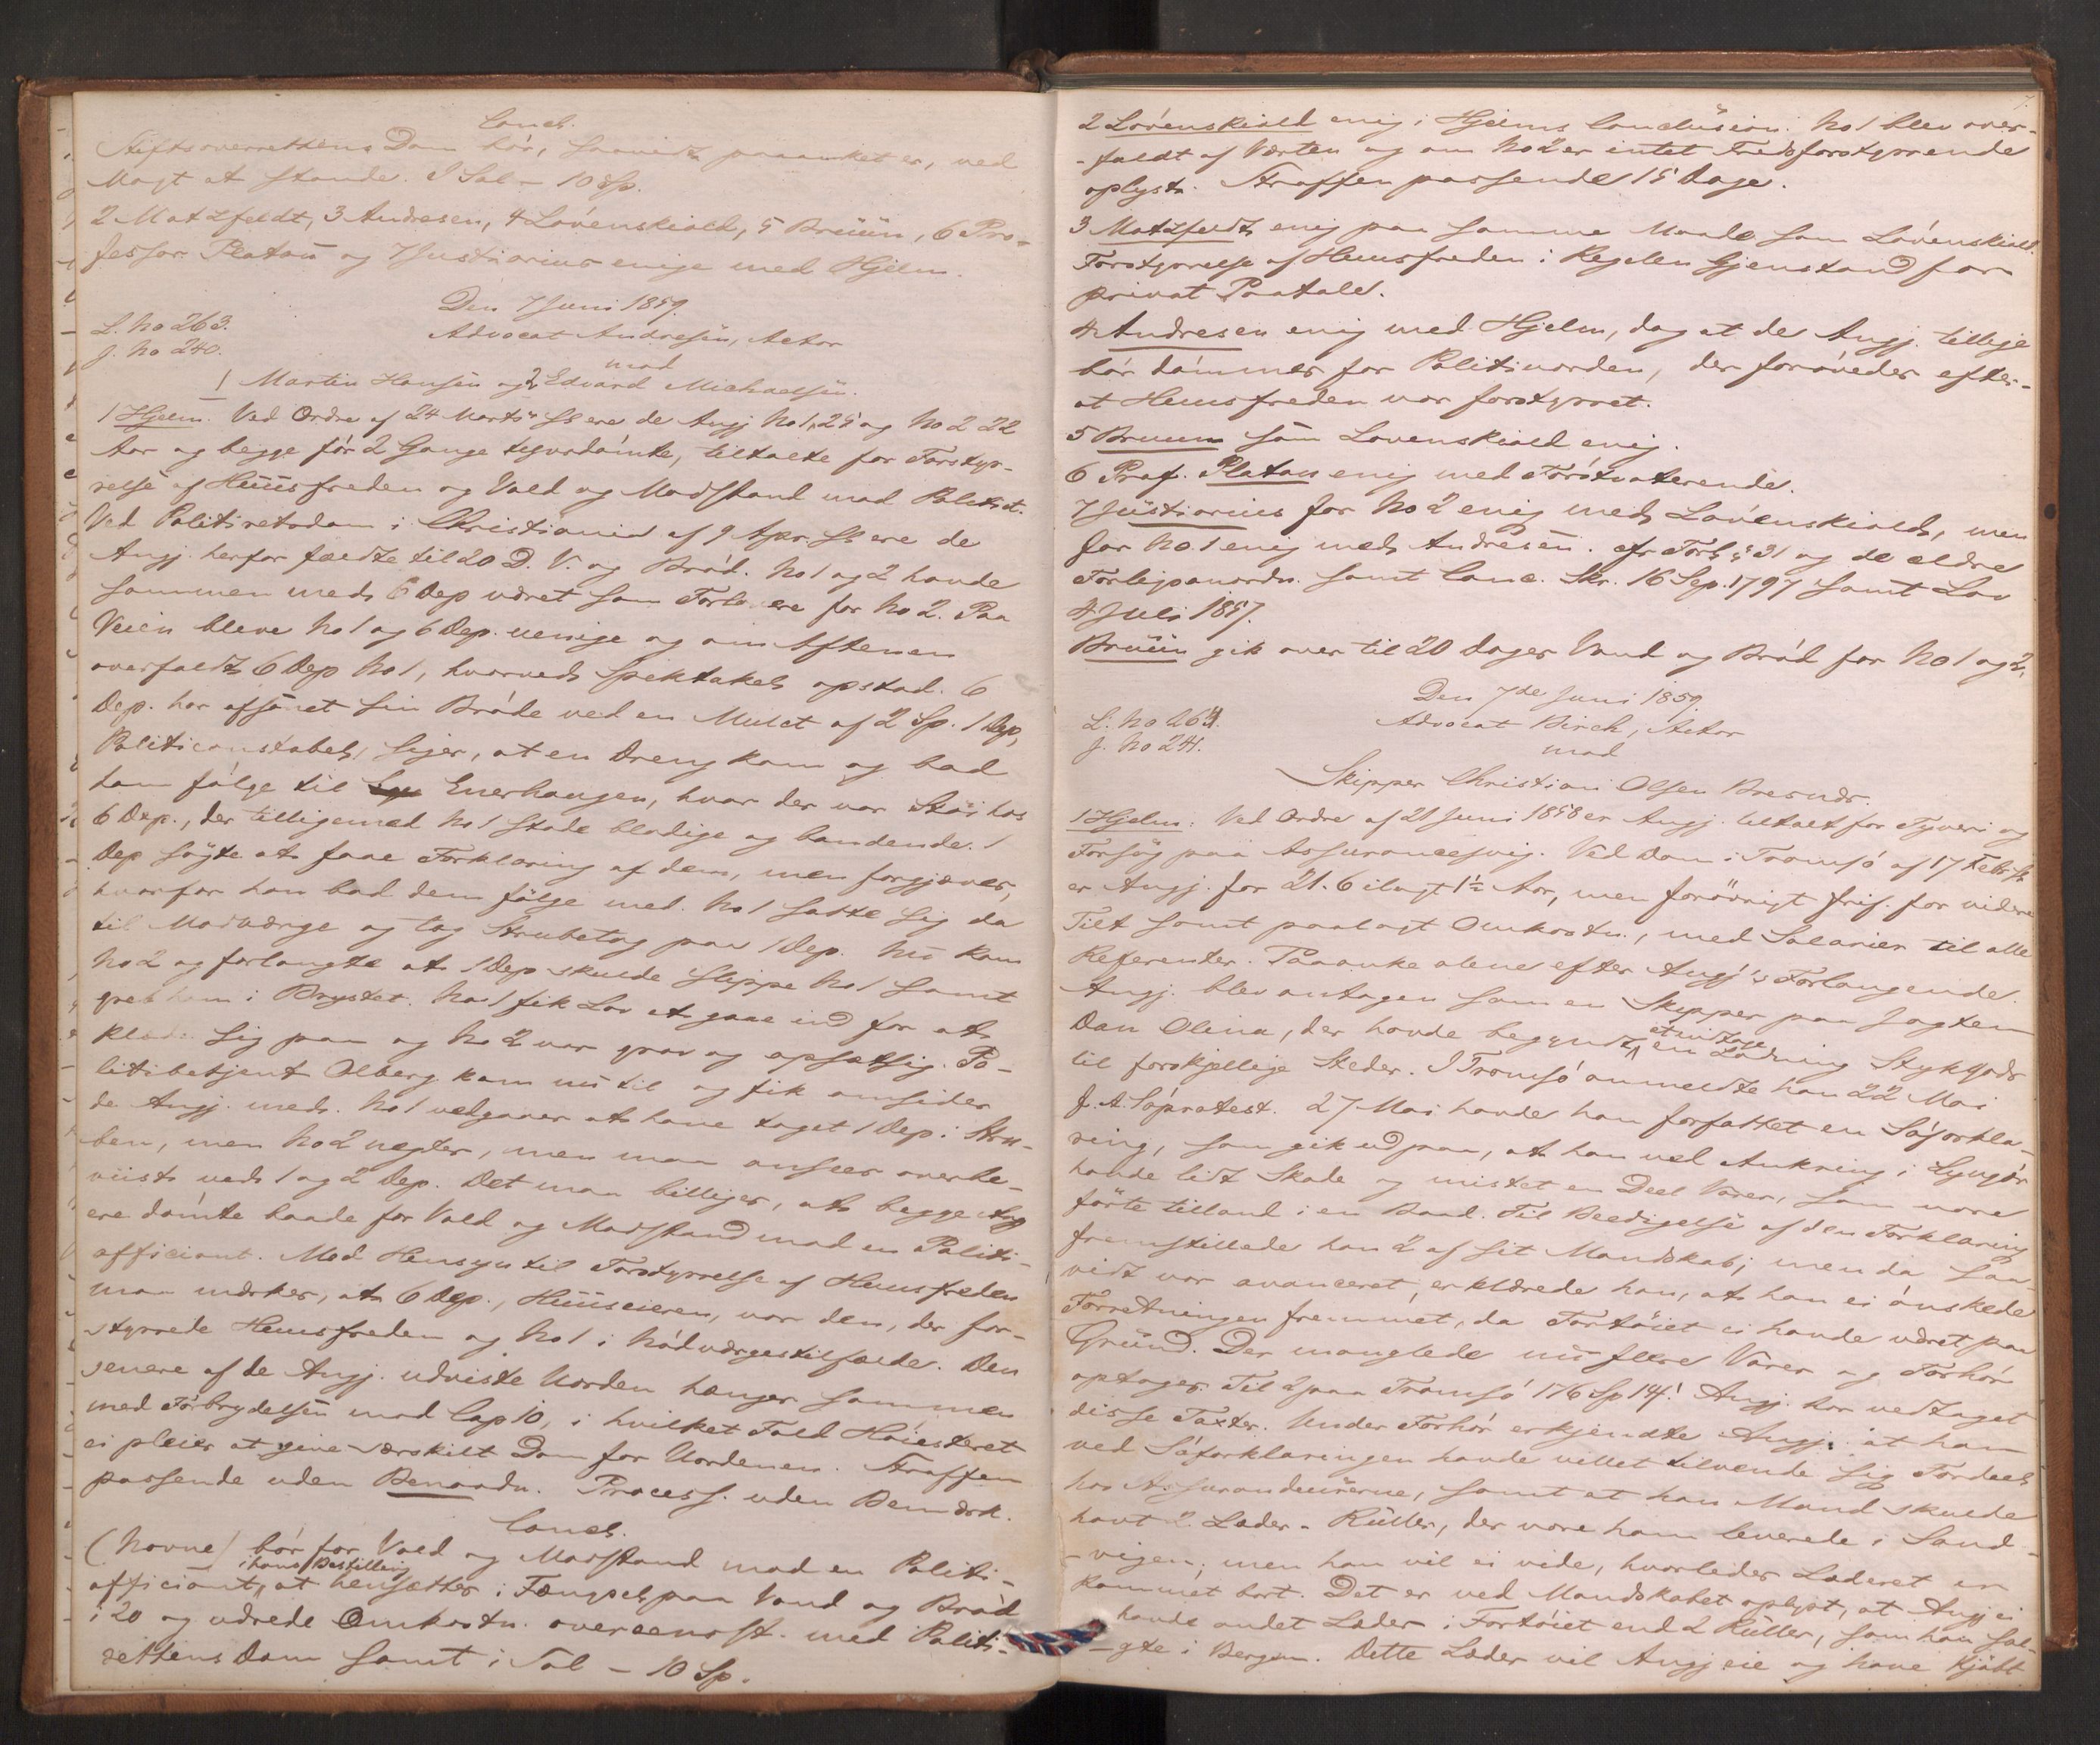 Concl.
Stiftsoverrettens Dom bör, saavidt paaanket er, ved
Magt at stande. I Sal - 10 Sp.
2 Motzfeldt, 3 Andresen, 4 Lövenskiold, 5 Bruün, 6 Pro-
fessor Platoü og 7 Justiarius enige med Hjelm.
Den 7 Juni 1859.
L. No 263.
J. No 240.
Advocat Andresen, Actor
mod
1 Martin Hansen og 2 Edvard Michaelsen.
1 Hjelm. Ved Ordre af 24 Marts ere de Angj. No 1, 25 og No 2 22
Aar og begge för 2 Gange tyvsdömte, tiltalte for Forstyr-
relse af Huüsfreden og Vold og Modstand mod Politiet.
Ved Politiretsdom i Christiania af 9 Apr. ere de
Angj. herfor fældte til 20 D. V. og Bröd. No 1 og 2 havde
sammen med 6 Dep været som Forlovere for No 2. Paa
Veien bleve No 1 og 6 Dep. uenige og om Aftenen
overfaldt 6 Dep No 1, hvorved Spektakel opstod. 6
Dep. har afsonet sin Bröde ved en Mulct af 2 Sp. 1 Dep,
Politiconstabel, siger, at en Dreng kom og bad
ham fölge til Enerhaugen, hvor der var Stöi hos
6 Dep., der tilligemed No 1 stode blodige og bandende. 1
Dep sögte at faae Forklaring af dem, men forgjæves,
hvorfor han bad dem fölge med. No 1 satte sig da
til Modværge og tog Strubetag paa 1 Dep. Nü kom
No 2 og forlangte at 1 Dep skulde slippe No 1 samt
greb ham i Brystet. No 1 fik Lov at gaae ind for at
klæde sig paa og No 2 var grov og opsætsig. Po-
litibetjent Olberg kom nü til og fik omsider
de Angj. med. No 1 vedgaaer at have taget 1 Dep i Stru-
ben, men No 2 negter, men maa ansees overbe-
viist ved 1 og 2 Dep. Det maa billiges, at begge
ere dömte baade for Vold og Modstand mod en Politi-
officiant. Med Hensyn til Forstyrrelse af Huusfreden
maa mærkes, at 6 Dep., Huüseieren, var den, der for-
styrrede Huusfreden og No 1 i Nödværgestilfælde. Den
senere af de Angj. udviste Uorden hænger sammen
med Forbrydelsen mod Cap 10, i hvilket Fald Höiesteret
ei pleier at give særskilt Dom for Uordenen. Straffen
passende uden Benaadn. Process. uden Bemærk.
Concl.
(Navne) bör for Vold og Modstand mod en Politi-
officiant i hans Bestilling at hensættes i Fængsel paa Vand og Bröd
i 20 og udrede Omkostn. overeensst. med Politi-
rettens Dom samt i Sal - 10 Sp.
2 Lövenskiold enig i Hjelms Conclüsion. No 1 blev over-
-faldt af Værten og om No 2 er intet Fredsforstyrrende
oplyst. Straffen passende 15 Dage.
3 Motzfeldt enig paa samme Maade som Lövenskiold.
Forstyrrelse af Huusfreden i Regelen Gjenstand for
privat Paatale.
4 Andresen enig med Hjelm, dog at de Angj. tillige
bör dömmes for Politiuorden, der forövedes efter-
at Huusfreden var forstyrret.
5 Bruun som Lövenskiold enig.
6 Prof. Platou enig med Förstvoterende.
7 Jüstiarius for No 2 enig med Lövenskiold, men
for No. 1 enig med Andresen. cfr Forl. § 31 og de ældre
Forligsanordn. samt Canc. Skr. 16 Sep. 1797 samt Lov
4 Juli 1857.
Bruün gik over til 20 Dages Vand og Bröd for No 1 og 2.
Den 7de Juni 1859.
L. No 264.
J. No 241.
Advocat Birch, Actor
mod
Skipper Christian Olsen Bresnds.
1 Hjelm: Ved Ordre af 21 Juni 1858 er Angj. tiltalt for Tyveri og
Forsög paa Assurancesvig. Ved Dom i Tromsö af 17 Febr.
er Angj. for 21. 6 ilagt 1½ Aar, men forövrigt frif. for videre
Tilt samt paalagt Omkostn., med Salarier til alle
Referenter. Paaanke alene efter Angj's Forlangende.
Angj. blev antagen som en Skipper paa Jagten
Den Olina, der havde begyndt at indtage en Ladning Stykgods
til forskjellige Steder. I Tromsö anmeldte han 22 Mai
f. A. Söprotest. 27 Mai havde han forfattet en Söforkla-
ring, som gik ud paa, at han ved Ankring i Lyngör
havde lidt Skade og mistet en Deel Varer, som vare
förte tilland i en Baad. Til Beedigelse af den Forklaring
fremstillede han 2 af sit Mandskab; men da saa-
vidt var avanceret, erklærede han, at han ei önskede
Forretningen fremmet, da Fartöiet ei havde været paa
Gründ. Der manglede nü flere Varer og Forhör
optoges. Til 2 paa Tromsö 176 Sp 14 ! Angj. har vedtaget
disse Taxter. Under Forhör erkjendte Angj. at han
ved Söforklaringen havde villet tilvende sig Fordeel
hos Assurandeürerne, samt at han Mand skulde
havt 2 Læder-Rüller, der vare ham leverede i Sand-
-vigen; men han vil ei vide, hvorledes Læderet er
kommet bort. Det er ved Mandskabet oplyst, at Angj ei
havde andet Læder i Fartöiet end 2 Rüller, som han sol-
-gte i Bergen. Dette Læder vil Angj eie og have kjöbt